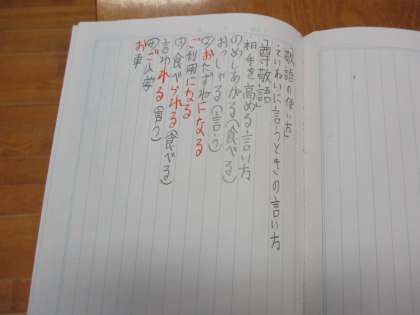 敬語の使い方
ていねいに言うときの言い方
「尊敬語」
相手を高める言い方
①めしあがる(食べる)
おっしゃる(言う)
②おたずねになる
ご利用になる
③食べられる(食べる)
言われる(言う)
④ご入学
お車